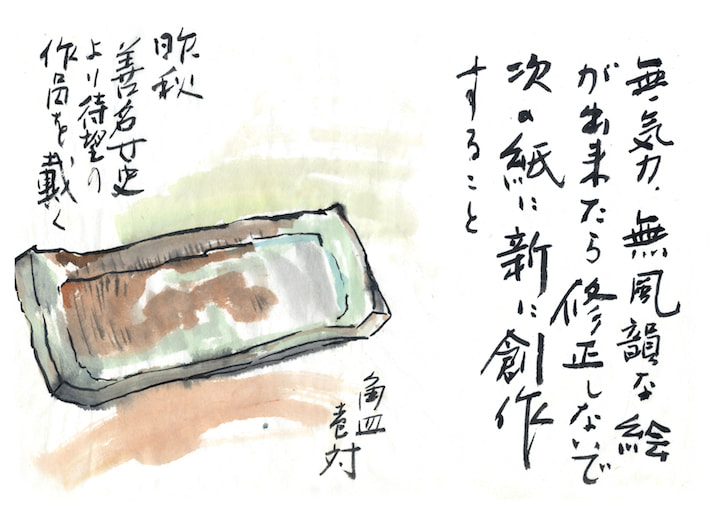 無気力、無風韻な絵
が出来たら修正しないで
次の紙に新に創作
すること
昨秋
善名女史
より待望の
作品を戴く
角皿
壱対